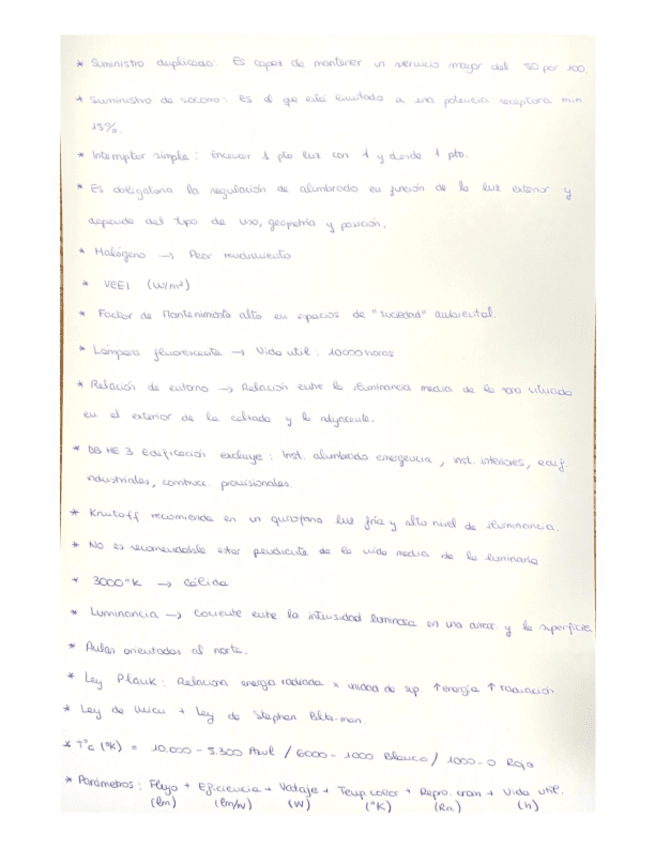 * Suministro duplicado: Es capaz de mantener un servicio mayor del 50 por 100.
* Suministro de socorro: Es el que está limitado a una potencia receptora min.
15%.
* Interruptor simple: Encever 1 pto luz con 1 y desde 1 pto.
* Es obligatoria la regulación de alumbrado en función de la luz exterior y
depende del tipo de uso, geometría y posición.
* Halógeno → Peor rendimiento
* VEEI (W/m²)
* Factor de Mantenimiento alto en espacios de "suciedad" ambiental.
* Lámpara fluorescente → Vida util: 10000 horas
* Relación de entorno → Relación entre la iluminancia media de la zona situada
en el exterior de la calzada y la adyacente.
* DB HE 3 edificación excluye: Inst. alumbrado emergencia, inst. interiores, edif.
industriales, construcc. provisionales.
* Kruitoff recomienda en un quirofano luz fría y alto nivel de iluminancia.
* No es recomendable estar pendiente de la vida media de la luminaria
* 3000°K → Cálida
* Luminancia → Cociente entre la intensidad luminosa en una direcc. y la superficie
* Aulas orientadas al norte.
* Ley Plank: Relaciona energía radiada x unidad de sup. ↑energía ↑ radiación.
* Ley de Wien + Ley de Stephan Bltz-man.
* T°c (°K) = 10.000 - 5.300 Azul / 6000 - 1000 Blanco / 1000 - 0 Rojo
* Parámetros: Flujo + Eficiencia + Vataje + Temp. color + Repro. crom + Vida útil.
(lm) (lm/w) (W) (°K) (Ra) (h)